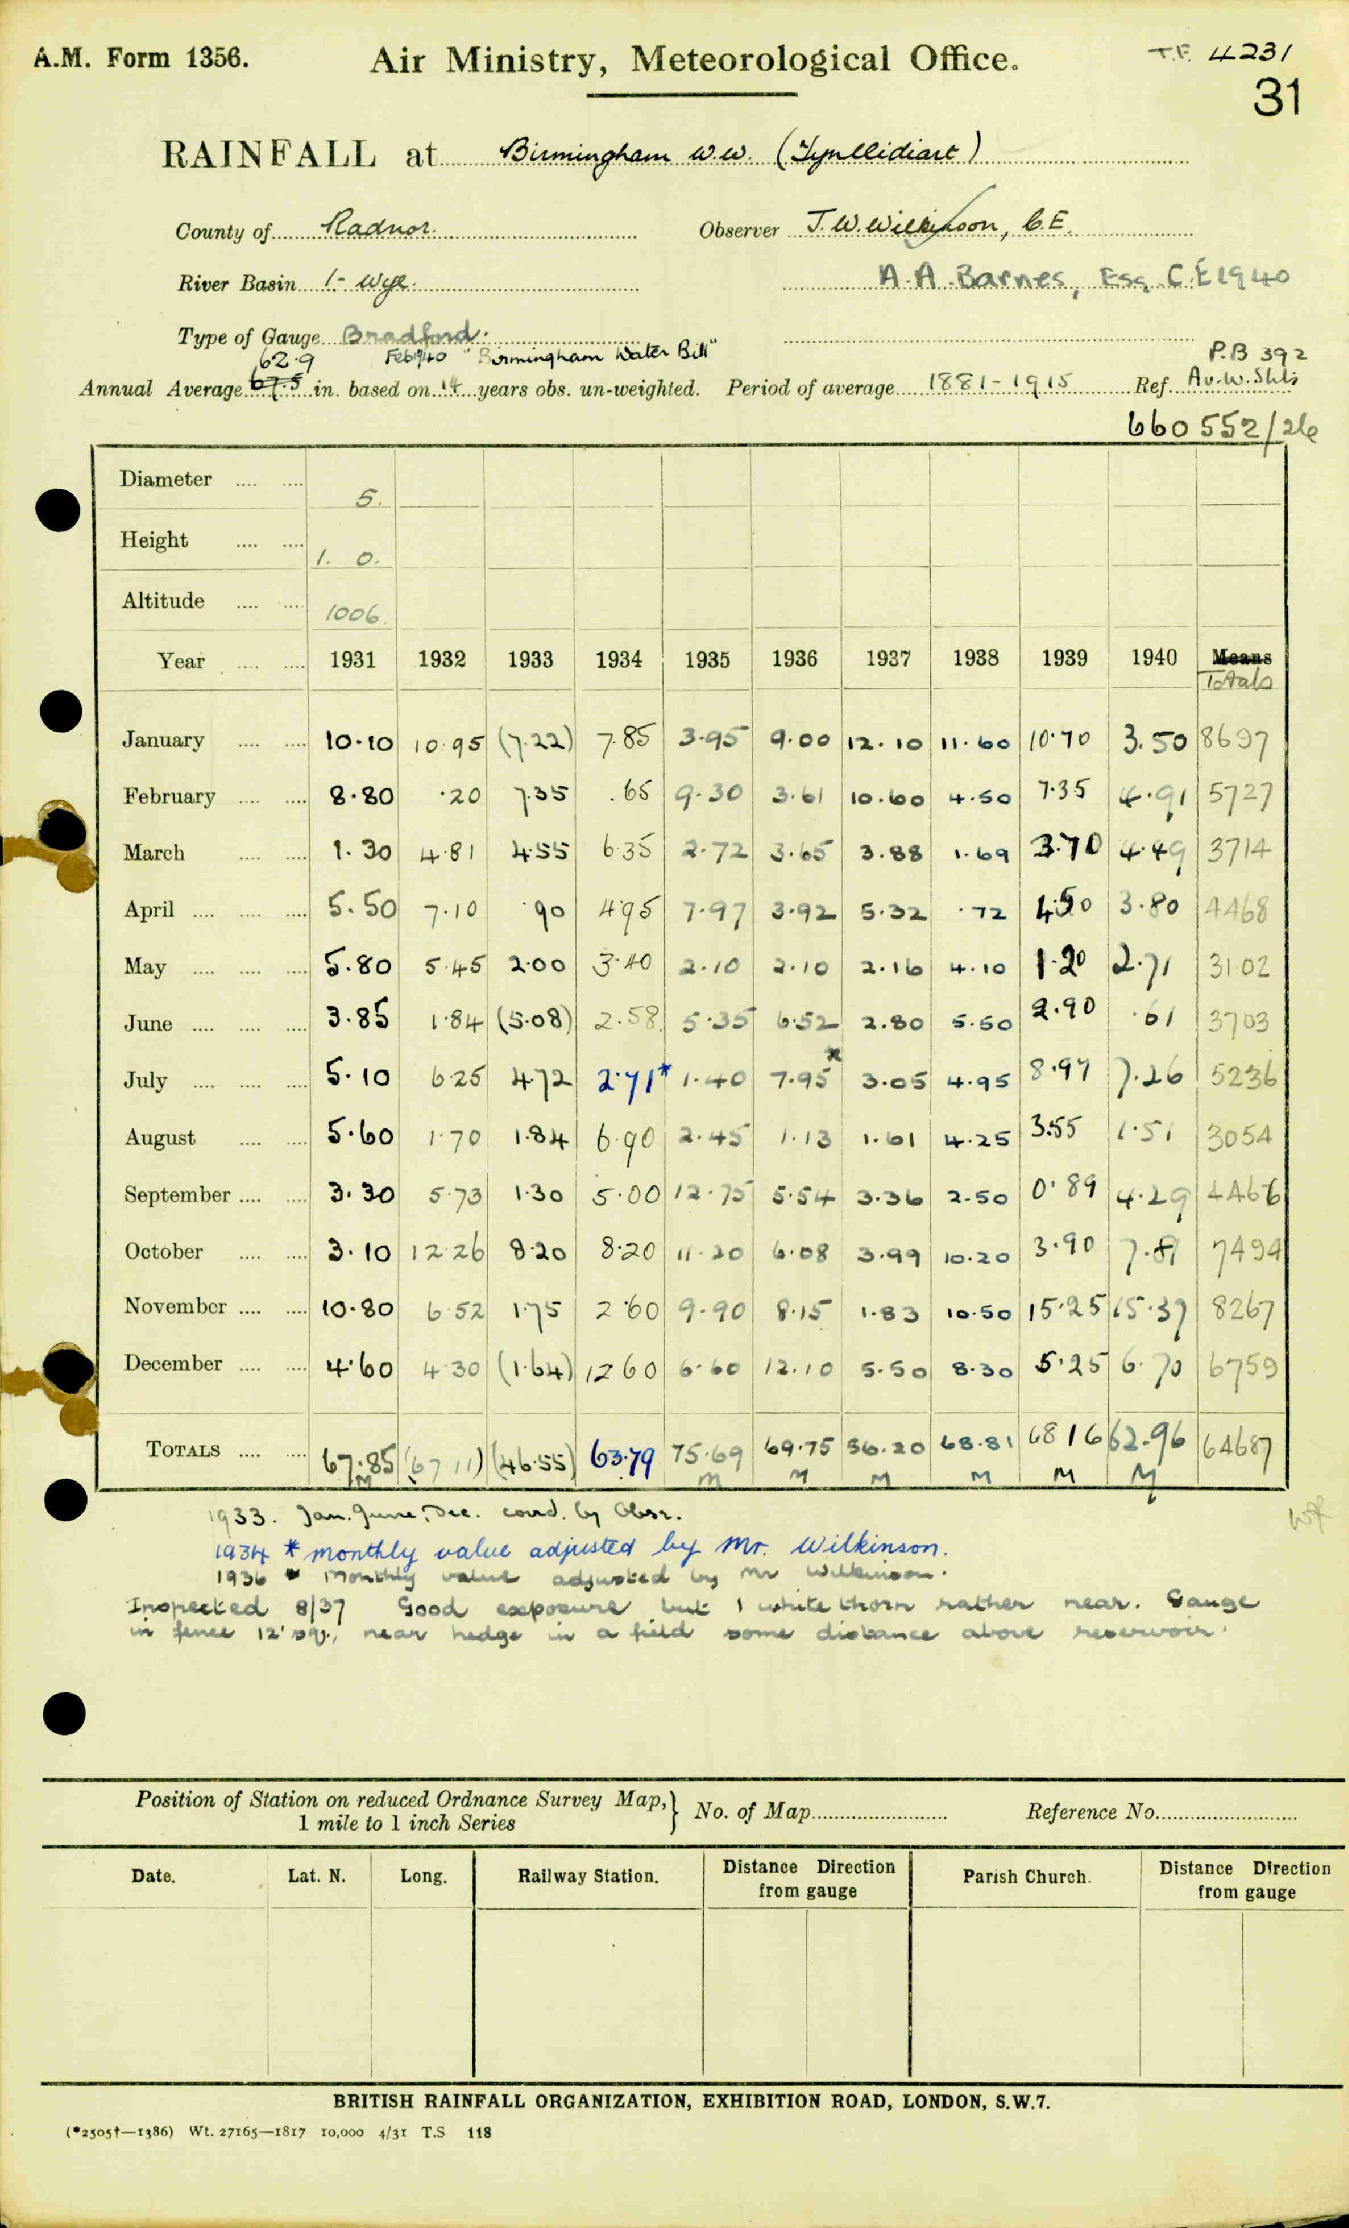 A.M. Form 1356. Air Ministry, Meteorological Office. T.F. 4231
31
RAINFALL at Birmingham W.W. (Tynllidiart)
County of Radnor. Observer J.W. Wilkinson, C.E.
River Basin 1- Wye. A.A. Barnes, Esq. C.E 1940
Type of Gauge Bradford.
62.9 Feb 1940 "Birmingham Water Bill" P.B 392
Annual Average 67.5 in. based on 14 years obs. un-weighted. Period of average 1881-1915 Ref. Av.W.Shts
660552/26
Diameter .... .... 5.
Height .... .... 1. 0.
Altitude .... .... 1006.
Year .... .... 1931 1932 1933 1934 1935 1936 1937 1938 1939 1940 Means
Totals
January .... .... 10.10 10.95 (7.22) 7.85 3.95 9.00 12.10 11.60 10.70 3.50 8697
February .... .... 8.80 .20 7.35 .65 9.30 3.61 10.60 4.50 7.35 4.91 5727
March .... .... 1.30 4.81 4.55 6.35 2.72 3.65 3.88 1.69 3.70 4.49 3714
April .... .... .... 5.50 7.10 .90 4.95 7.97 3.92 5.32 .72 4.50 3.80 4468
May .... .... .... 5.80 5.45 2.00 3.40 2.10 2.10 2.16 4.10 1.20 2.71 31.02
June .... .... .... 3.85 1.84 (5.08) 2.58 5.35 6.52 2.80 5.50 2.90 .61 3703
July .... .... .... 5.10 6.25 4.72 2.71* 1.40 7.95* 3.05 4.95 8.97 7.26 5236
August .... .... 5.60 1.70 1.84 6.90 2.45 1.13 1.61 4.25 3.55 1.51 3054
September .... .... 3.30 5.73 1.30 5.00 12.75 5.54 3.36 2.50 0.89 4.29 4466
October .... .... 3.10 12.26 8.20 8.20 11.20 6.08 3.99 10.20 3.90 7.81 7494
November .... .... 10.80 6.52 1.75 2.60 9.90 8.15 1.83 10.50 15.25 15.37 8267
December .... .... 4.60 4.30 (1.64) 12.60 6.60 12.10 5.50 8.30 5.25 6.70 6759
TOTALS .... .... 67.85 (67.11) (46.55) 63.79 75.69 69.75 56.20 68.81 68.16 62.96 64687
M M M M M M M
1933. Jan. June, Dec. by Obsr.
1934 * monthly value adjusted by Mr. Wilkinson.
1936 * Monthly value adjusted by Mr Wilkinson.
Inspected 8/37 Good exposure but 1 white thorn rather near. Gauge
in fence 12' sq., near hedge in a field some distance above reservoir.
Position of Station on reduced Ordnance Survey Map,} No. of Map.......... Reference No..........
1 mile to 1 inch Series
Date. Lat. N. Long. Railway Station. Distance Direction Parish Church. Distance Direction
from gauge from gauge
BRITISH RAINFALL ORGANIZATION, EXHIBITION ROAD, LONDON, S.W.7.
(*2505†—1386) Wt. 27165—1817 10,000 4/31 T.S 118